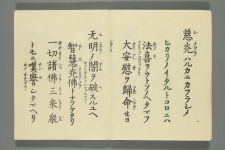 慈光ハルカニカフラシメ
ヒカリノイタルトコロニハ
法喜ヲウトソノヘタマフ
大安慰ヲ歸命セヨ
无明ノ闇ヲ破スルユヘ
智慧光佛トナツケタリ
一切諸佛三乘衆
トモニ嘆譽シタマヘリ